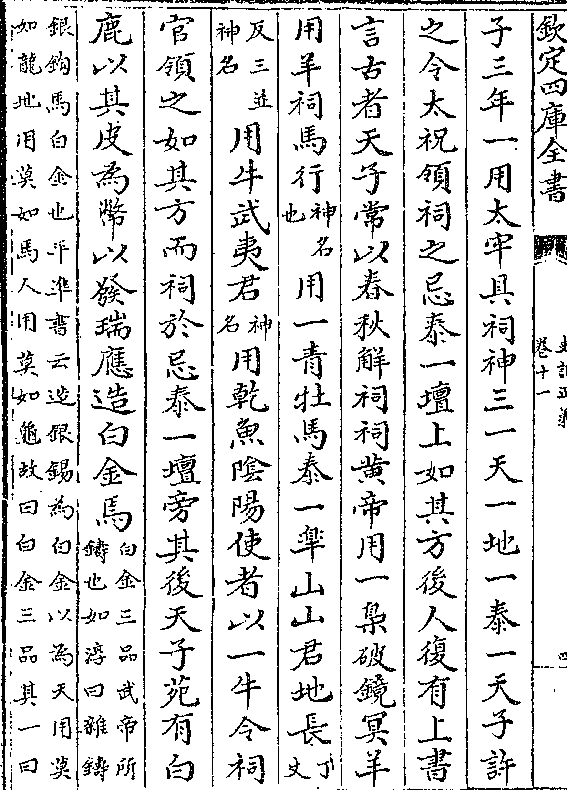 欽定四庫全書
史記正義
卷十一
四
子三年一用太牢具祠神三一天一地一泰一天子許
之令太祝領祠之忌泰一壇上如其方後人復有上書
言古者天子常以春秋解祠祠黄帝用一梟破鏡冥羊
用羊祠馬行神名也用一青牡馬泰一臯山山君地長丁丈
反三並神名用牛武夷君神名用乾魚陰陽使者以一牛令祠
官領之如其方而祠於忌泰一壇旁其後天子苑有白
鹿以其皮為幣以發瑞應造白金馬白金三品武帝所鑄也如淳曰雜鑄
銀鈎馬白金也平準書云造銀錫為白金以為天用莫
如龍地用莫如馬人用莫如龜故曰白金三品其一曰